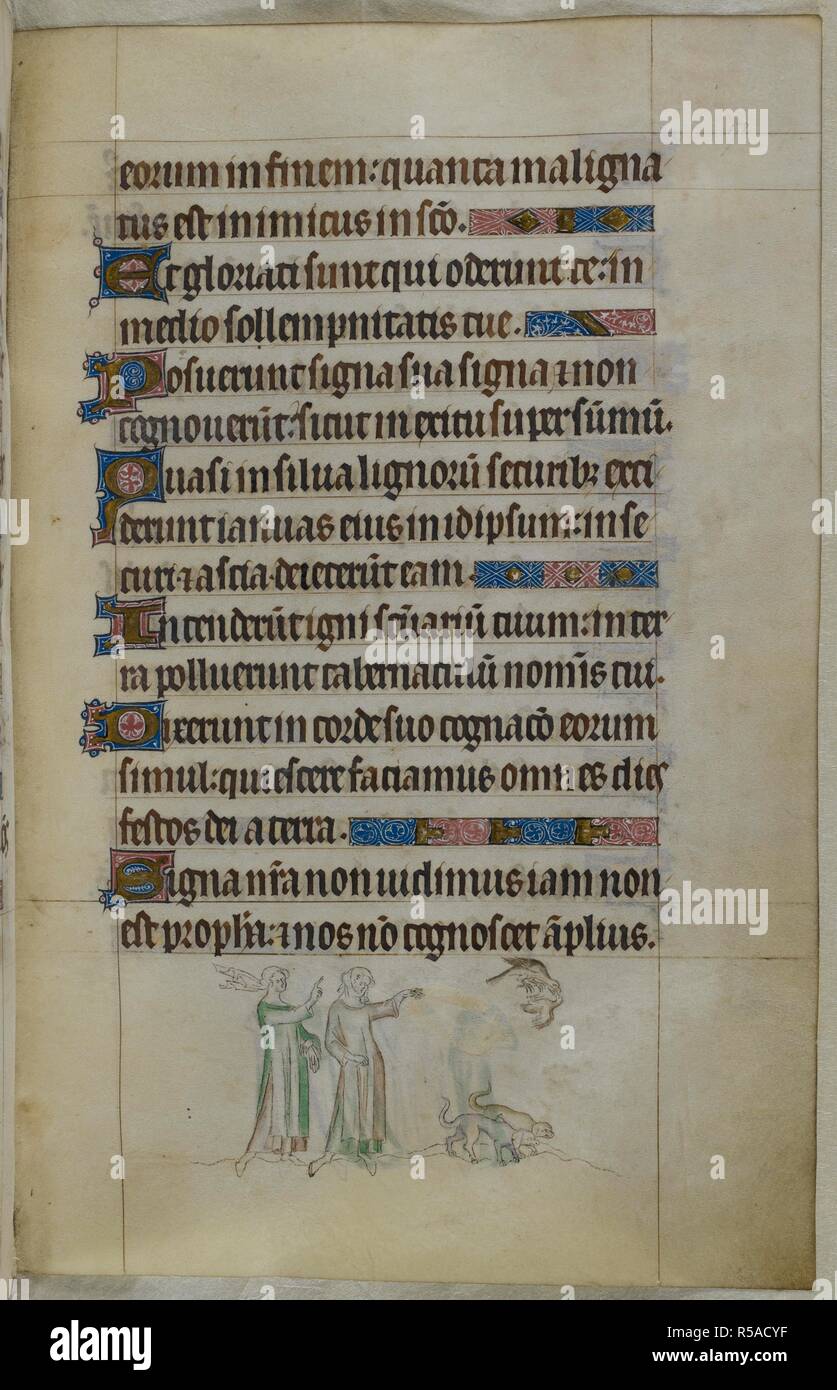 eorum in finem: quanta maligna
tus est inimicus in sc̄o.
Et gloriati sunt qui oderunt te: in
medio sollempnitatis tue.
Posuerunt signa sua signa ⁊ non
cognouerūt: sicut in exitu super sūmū.
Quasi in silua lignorū securibꝫ exci
derunt ianuas eius in id ipsum: in se
curi ⁊ ascia deiecerūt eam.
Incenderūt igni sc̄uariū tuum: in ter
ra polluerunt tabernaculū nomīs tui.
Dixerunt in corde suo cognac̄o eorum
simul: quiescere faciamus omnes dies
festos dei a terra.
Signa nr̄a non uidimus iam non
est proph̄a: ⁊ nos nō cognoscet āplius.
alamy
Image ID: R5ACYF
www.alamy.com